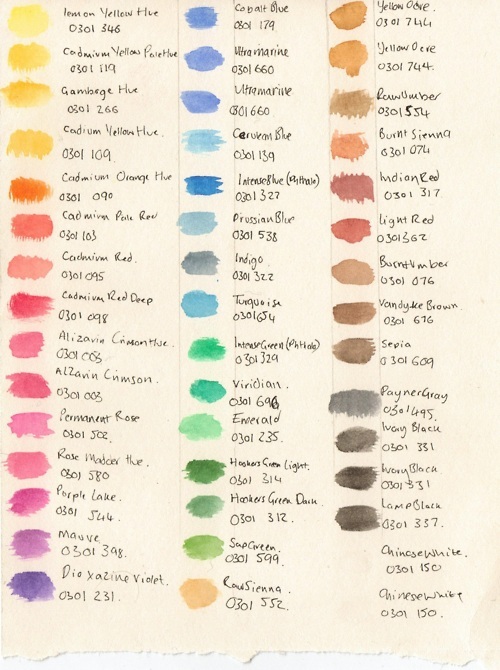 lemon Yellow Hue
0301 346
Cadmium Yellow Pale Hue
0301 119
Gamboge Hue
0301 266
Cadium Yellow Hue.
0301 109.
Cadmium Orange Hue
0301 090
Cadmium Pale Red
0301 103
Cadmium Red.
0301 095
Cadmium Red Deep
0301 098
Alizarin Crimson Hue.
0301 003
Alzarin Crimson.
0301 003
Permanent Rose
0301 502.
Rose Madder Hue.
0301 580
Purple Lake.
0301 544.
Mauve
0301 398.
Dioxazine Violet.
0301 231.
Cobalt Blue
0301 179
Ultramarine
0301 660
Ultramarine
0301 660
Cerulean Blue
0301 139
Intense Blue (Phthalo)
0301 327
Prussian Blue
0301 538
Indigo
0301 322
Turquoise
0301 654
Intense Green (Phthalo)
0301 329
Viridian.
0301 696
Emerald
0301 235.
Hookers Green Light.
0301 314
Hookers Green Dark
0301 312.
Sap Green.
0301 599.
Raw Sienna.
0301 552.
Yellow Ocre.
0301 744
Yellow Ocre
0301 744.
Raw Umber
0301 554
Burnt Sienna
0301 074
Indian Red
0301 317
Light Red
0301 362
Burnt Umber
0301 076
Vandyke Brown.
0301 676
Sepia
0301 609
Payner Gray
0301 495.
Ivory Black
0301 331
Ivory Black
0301 331
Lamp Black
0301 337.
Chinese White.
0301 150
Chinese White
0301 150.